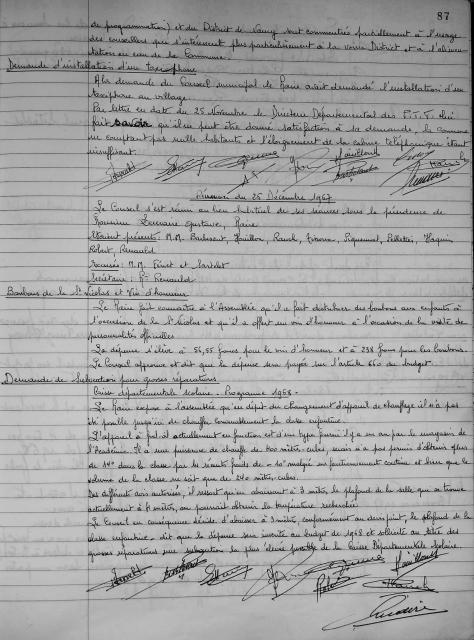 87
de programmation) et du District de Nancy sont commentés partiellement à l'usage
des conseillers qui s'intéressent plus particulièrement à la vie du District et à l'alimen-
tation en eau de la Commune.
Demande d'installation d'un taxiphone
A la demande du Conseil municipal le Maire avait demandé l'installation d'un
taxiphone au village.
Par lettre en date du 25 Novembre le Directeur Départemental des P.T.T. lui
fait savoir qu'il ne peut être donné satisfaction à la demande, la commune
ne comptant pas mille habitants et l'élargissement de la cabine téléphonique étant
insuffisant.
Réunion du 26 Décembre 1967
Le Conseil s'est réuni au lieu habituel de ses séances sous la présidence de
Monsieur Gustave, Maire
Etaient présents: M.M. Mouillon, Rauch, Piquemal, Pelletier, Haquin
Robert, Renauld
Excusés: M.M. Février et Bartholet
Secrétaire: Mr Renauld
Bonbons de la St Nicolas et Vin d'honneur
Le Maire fait connaître à l'Assemblée qu'il a fait distribuer des bonbons aux enfants à
l'occasion de la St Nicolas et qu'il a offert un vin d'honneur à l'occasion de la visite de
personnalités officielles
La dépense s'élève à 56,55 francs pour le vin d'honneur et à 238 francs pour les bonbons.
Le Conseil approuve et dit que la dépense sera payée sur l'article 660 du budget.
Demande de Subvention pour grosses réparations
Caisse départementale scolaire. Programme 1968.
Le Maire expose à l'assemblée qu'en dépit du changement d'appareil de chauffage il n'a pas
été possible jusqu'ici de chauffer convenablement la classe enfantine.
L'appareil à fuel actuellement en fonction est d'un type fourni il y a un an par le magasin de
l'Académie. Il a une puissance de chauffe de 400 mètres-cubes, mais n'a pas permis d'obtenir plus
de 14° dans la classe par les récents froids de - 10° malgré un fonctionnement continu et bien que le
volume de la classe ne soit que de 240 mètres-cubes.
Des différents avis autorisés, il ressort qu'en abaissant à 3 mètres, le plafond de la salle qui se trouve
actuellement à 4 mètres, on pourrait obtenir la température recherchée.
Le Conseil en conséquence décide d'abaisser à 3 mètres, conformément au devis joint, le plafond de la
classe enfantine, dit que la dépense sera inscrite au budget de 1968 et sollicite au titre des
grosses réparations une subvention la plus élevée possible de la Caisse Départementale Scolaire.